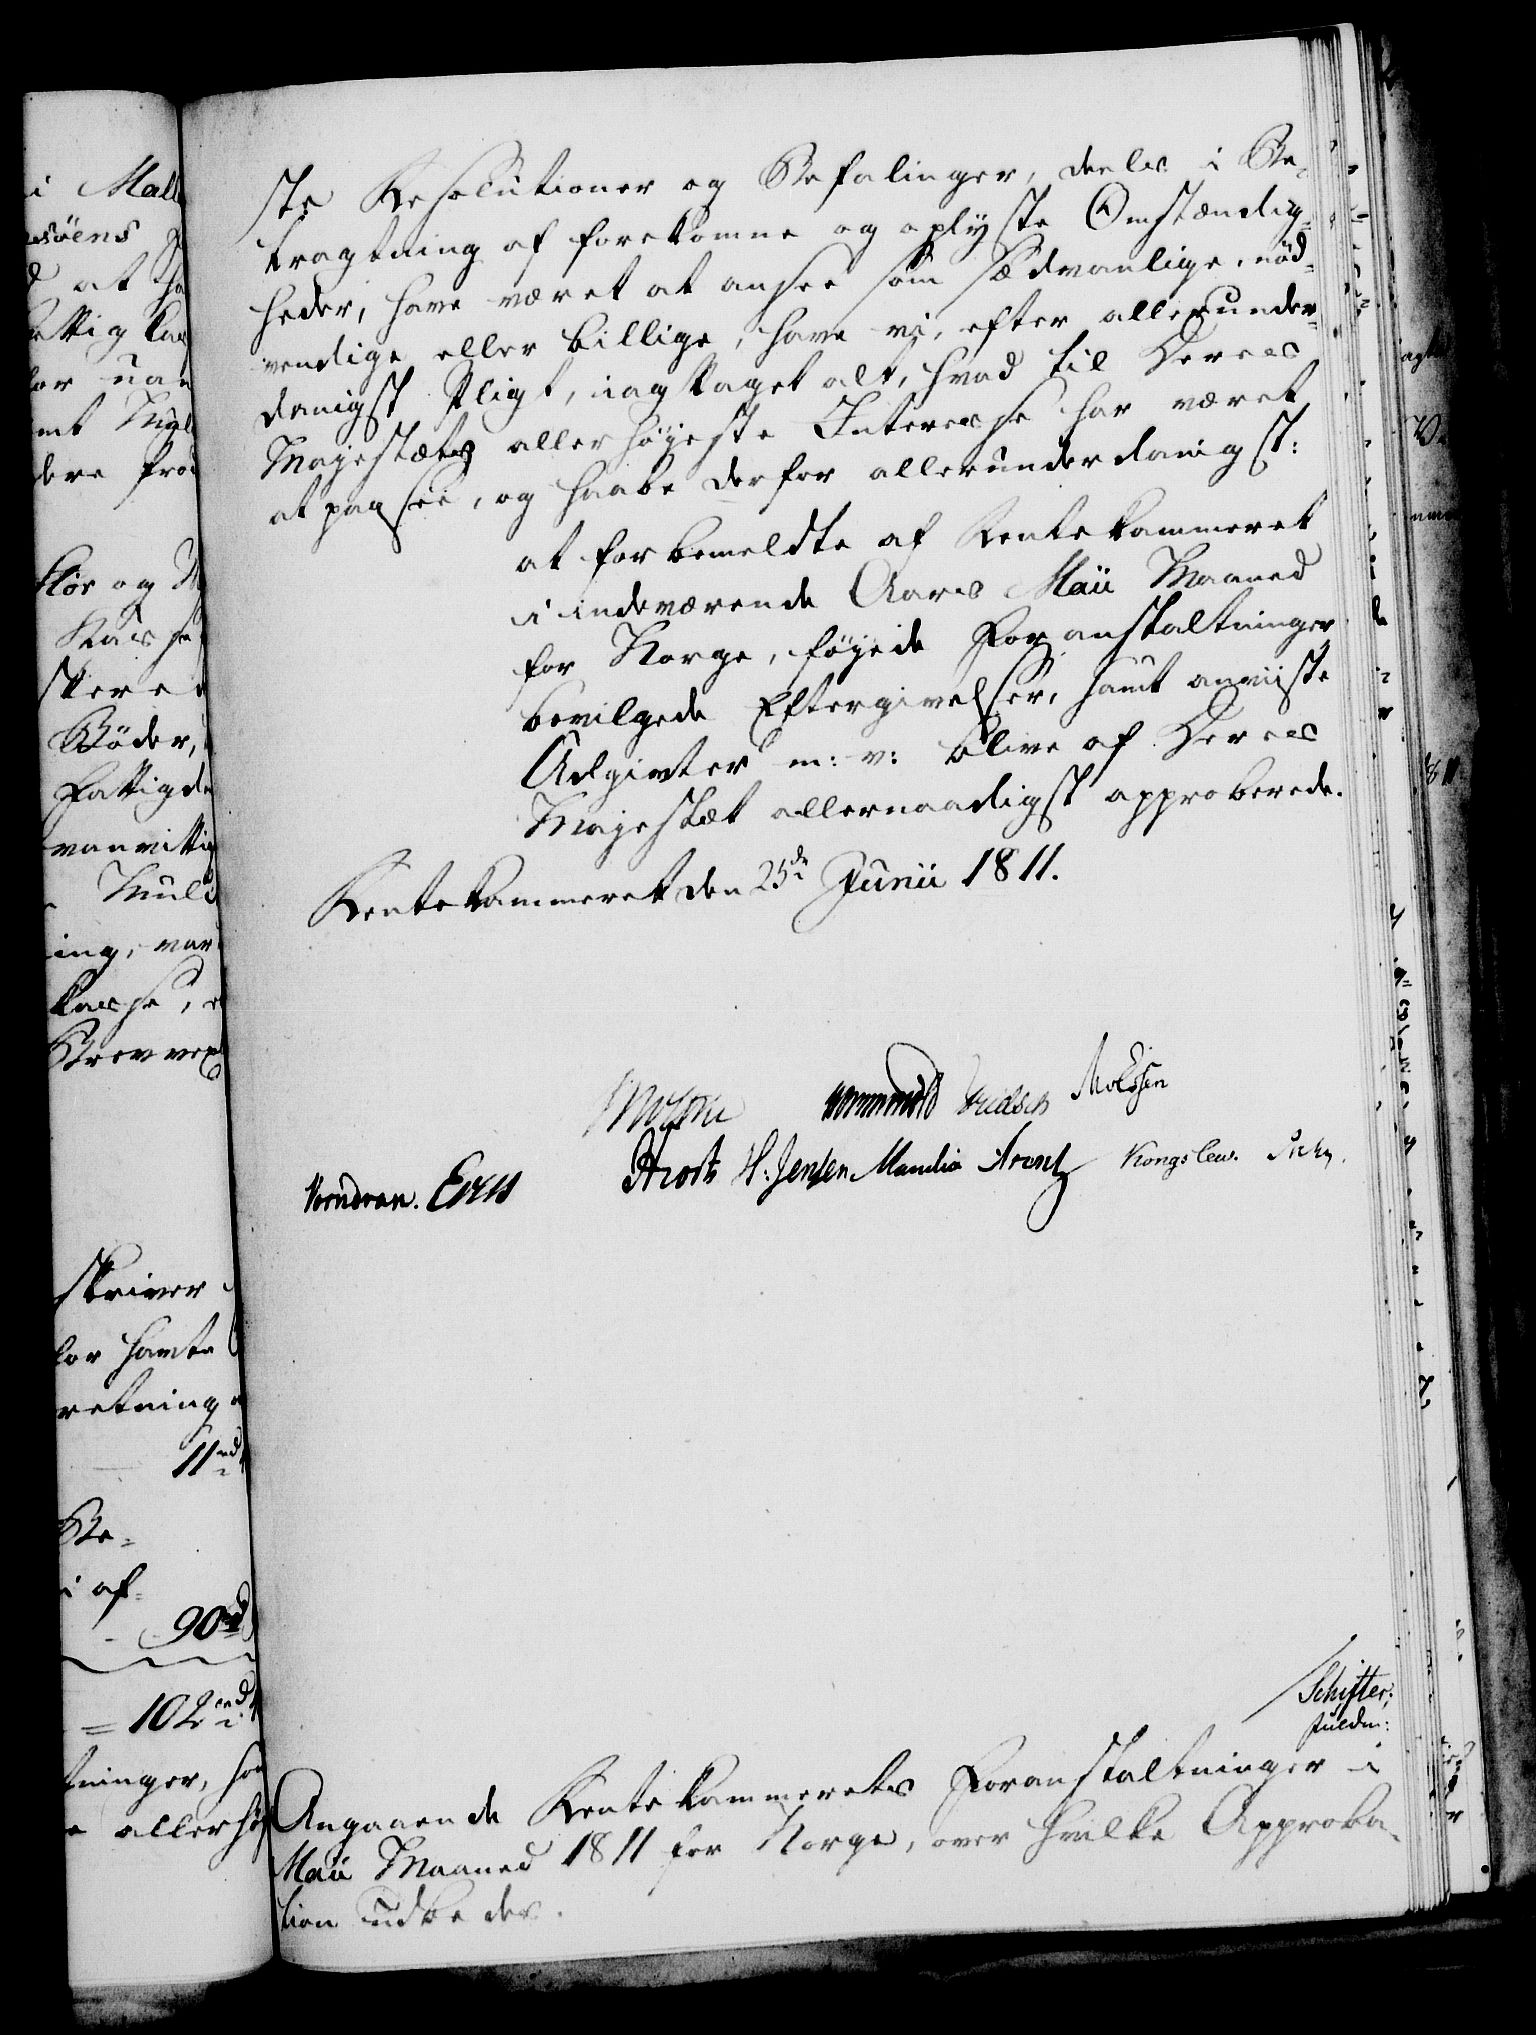 ste Resolutioner og Befalinger, deels i Be-
tragtning af forekomne og oplyste Omstændig-
heder, have været at ansee som sædvanlige, nød-
vendige eller billige, have vi, efter allerunder-
danigst Pligt, iagttaget alt, hvad til Deres
Majestæts allerhøjeste Interesse har været
at paasee, og haabe derfor allerunderdanigst:
at forbemeldte af Rentekammeret
i indeværende Aars Maii Maaned
for Norge, føjede Foranstaltninger
bevilgede Eftergivelser, samt anviiste
Udgivter m: v: blive af Deres
Majestæt allernaadigst approberede.
Rentekammeret den 25de Junii 1811.
Knudsen
H: Jensen Manthie Arentz Kongslew.
Schifter,
fuldm:
Angaaende Rentekammerets Foranstaltninger i
Maii Maaned 1811 for Norge, over hvilke Approba-
tion udbedes.
i Mall
søens
at
ttig kas
lor
dere
og
Kasse
Bøder,
Fattigd
vanvittig
ing, var
kasse,
skriver
lor
retning
11 rd
Be-
i af-
90 rd
= 102 rd
tninger,
allerhø